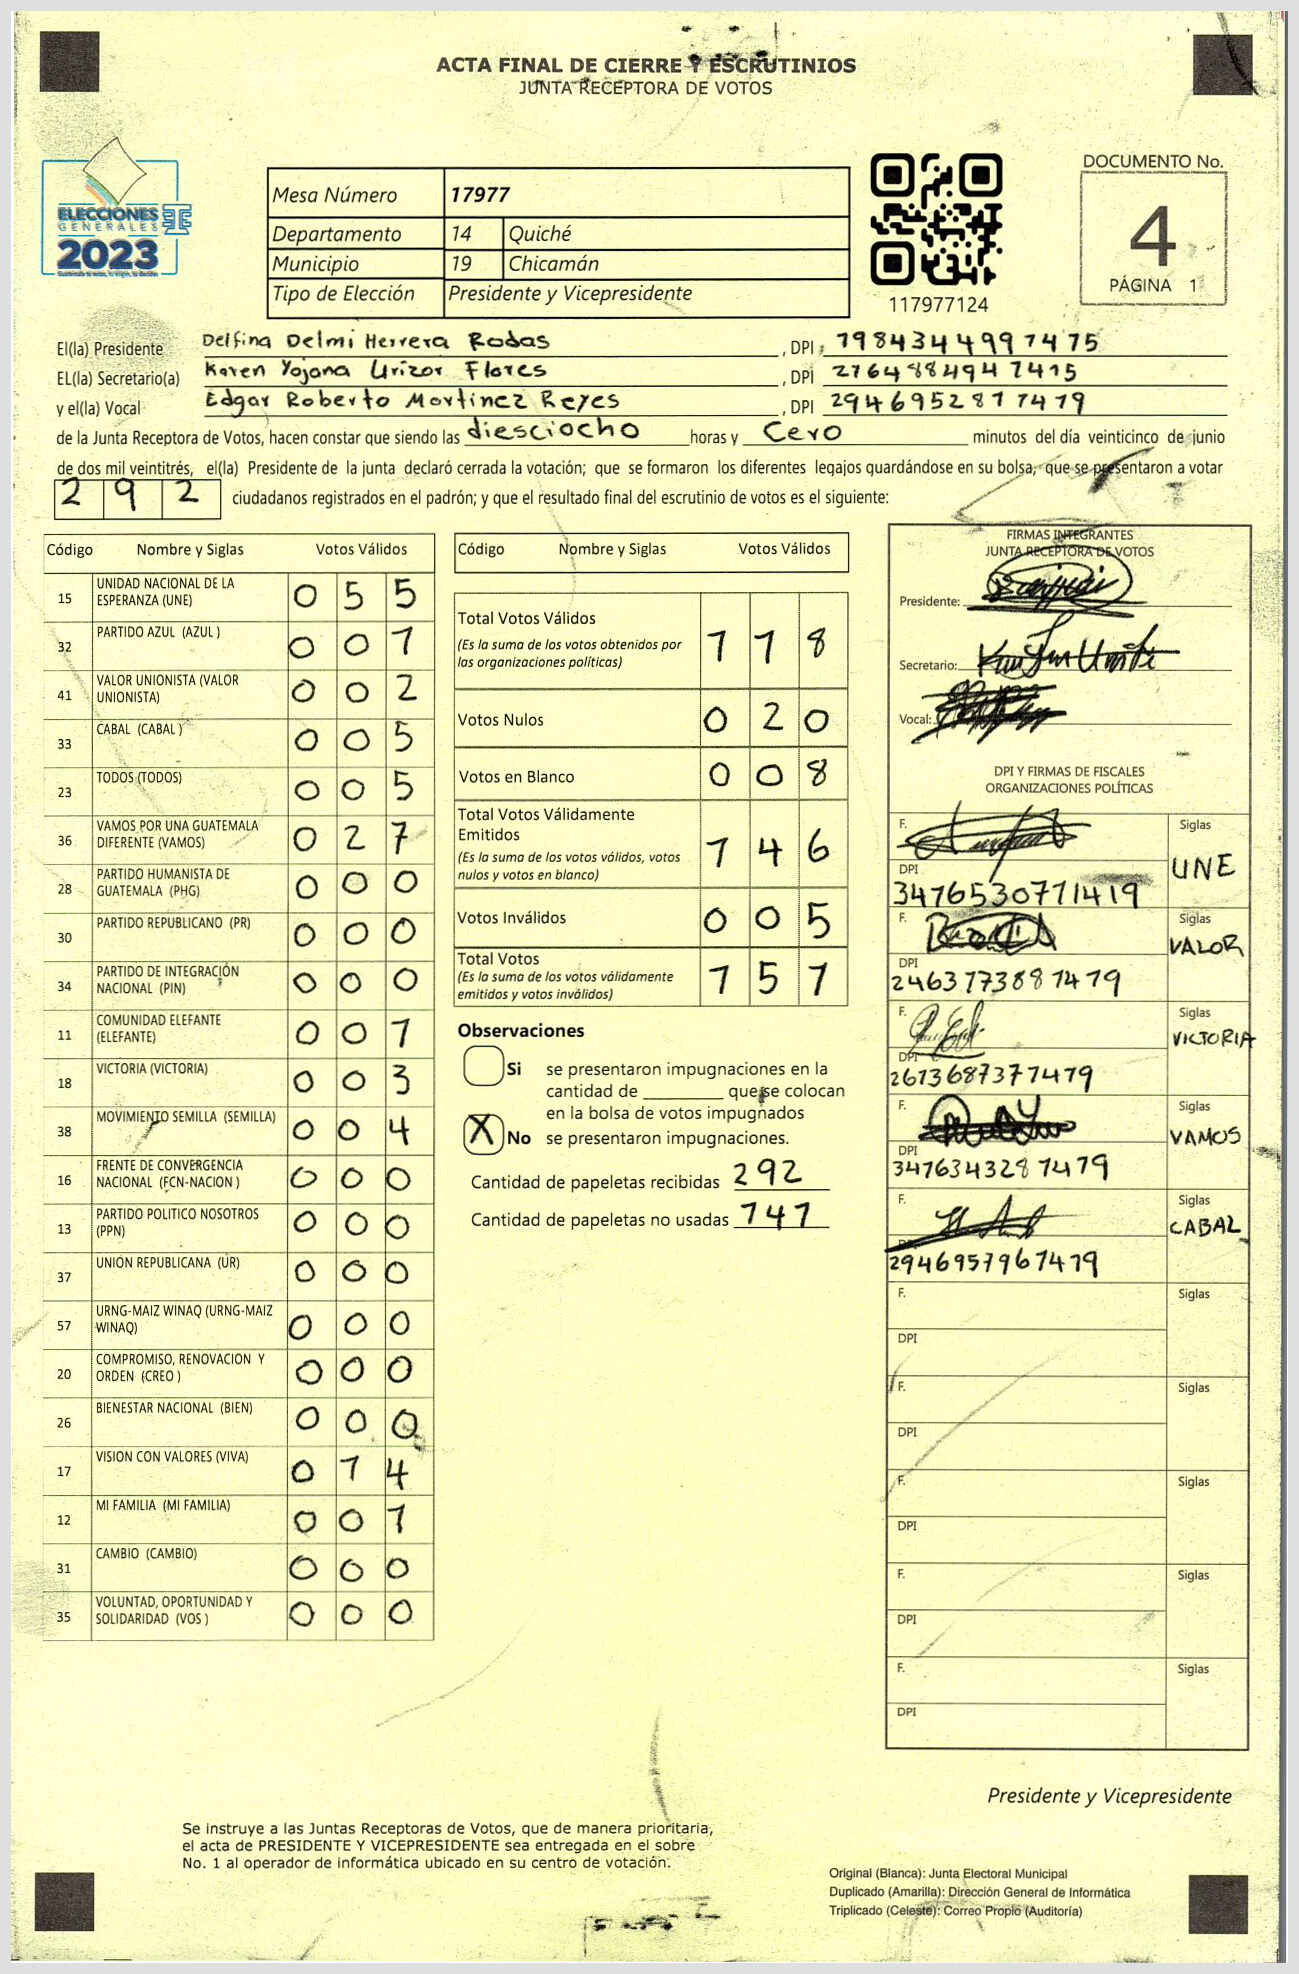 ACTA FINAL DE CIERRE Y ESCRUTINIOS
JUNTA RECEPTORA DE VOTOS
ELECCIONES
GENERALES
2023
Mesa Número 17977
Departamento 14 Quiché
Municipio 19 Chicamán
Tipo de Elección Presidente y Vicepresidente
117977124
DOCUMENTO No.
4
PÁGINA 1
El(la) Presidente Delfina Delmi Herrera Rodas , DPI 1984344991415
EL(la) Secretario(a) Karen Yojana Urizar Flores , DPI 2164884941415
y el(la) Vocal Edgar Roberto Martinez Reyes , DPI 2946952811419
de la Junta Receptora de Votos, hacen constar que siendo las diesciocho horas y Cero minutos del día veinticinco de junio
de dos mil veintitrés, el(la) Presidente de la junta declaró cerrada la votación; que se formaron los diferentes legajos guardándose en su bolsa, que se presentaron a votar
292 ciudadanos registrados en el padrón; y que el resultado final del escrutinio de votos es el siguiente:
Código Nombre y Siglas Votos Válidos
15 UNIDAD NACIONAL DE LA ESPERANZA (UNE) 0 5 5
32 PARTIDO AZUL (AZUL ) 0 0 1
41 VALOR UNIONISTA (VALOR UNIONISTA) 0 0 2
33 CABAL (CABAL ) 0 0 5
23 TODOS (TODOS) 0 0 5
36 VAMOS POR UNA GUATEMALA DIFERENTE (VAMOS) 0 2 7
28 PARTIDO HUMANISTA DE GUATEMALA (PHG) 0 0 0
30 PARTIDO REPUBLICANO (PR) 0 0 0
34 PARTIDO DE INTEGRACIÓN NACIONAL (PIN) 0 0 0
11 COMUNIDAD ELEFANTE (ELEFANTE) 0 0 1
18 VICTORIA (VICTORIA) 0 0 3
38 MOVIMIENTO SEMILLA (SEMILLA) 0 0 4
16 FRENTE DE CONVERGENCIA NACIONAL (FCN-NACION ) 0 0 0
13 PARTIDO POLITICO NOSOTROS (PPN) 0 0 0
37 UNIÓN REPUBLICANA (UR) 0 0 0
57 URNG-MAIZ WINAQ (URNG-MAIZ WINAQ) 0 0 0
20 COMPROMISO, RENOVACION Y ORDEN (CREO ) 0 0 0
26 BIENESTAR NACIONAL (BIEN) 0 0 0
17 VISION CON VALORES (VIVA) 0 1 4
12 MI FAMILIA (MI FAMILIA) 0 0 1
31 CAMBIO (CAMBIO) 0 0 0
35 VOLUNTAD, OPORTUNIDAD Y SOLIDARIDAD (VOS ) 0 0 0
Código Nombre y Siglas Votos Válidos
Total Votos Válidos 1 1 8
(Es la suma de los votos obtenidos por
las organizaciones políticas)
Votos Nulos 0 2 0
Votos en Blanco 0 0 8
Total Votos Válidamente
Emitidos 1 4 6
(Es la suma de los votos válidos, votos
nulos y votos en blanco)
Votos Inválidos 0 0 5
Total Votos 1 5 1
(Es la suma de los votos válidamente
emitidos y votos inválidos)
Observaciones
Si se presentaron impugnaciones en la
cantidad de ________ que se colocan
en la bolsa de votos impugnados
X No se presentaron impugnaciones.
Cantidad de papeletas recibidas 292
Cantidad de papeletas no usadas 141
FIRMAS INTEGRANTES
JUNTA RECEPTORA DE VOTOS
Presidente:
Secretario:
Vocal:
DPI Y FIRMAS DE FISCALES
ORGANIZACIONES POLÍTICAS
F. Siglas
UNE
DPI
3476530771419
F. Siglas
VALOR
DPI
2463773881419
F. Siglas
VICTORIA
DPI
2613687371419
F. Siglas
VAMOS
DPI
3476343281419
F. Siglas
CABAL
DPI
2946951961419
F. Siglas
DPI
F. Siglas
DPI
F. Siglas
DPI
F. Siglas
DPI
F. Siglas
DPI
Presidente y Vicepresidente
Se instruye a las Juntas Receptoras de Votos, que de manera prioritaria,
el acta de PRESIDENTE Y VICEPRESIDENTE sea entregada en el sobre
No. 1 al operador de informática ubicado en su centro de votación.
Original (Blanca): Junta Electoral Municipal
Duplicado (Amarilla): Dirección General de Informática
Triplicado (Celeste): Correo Propio (Auditoría)